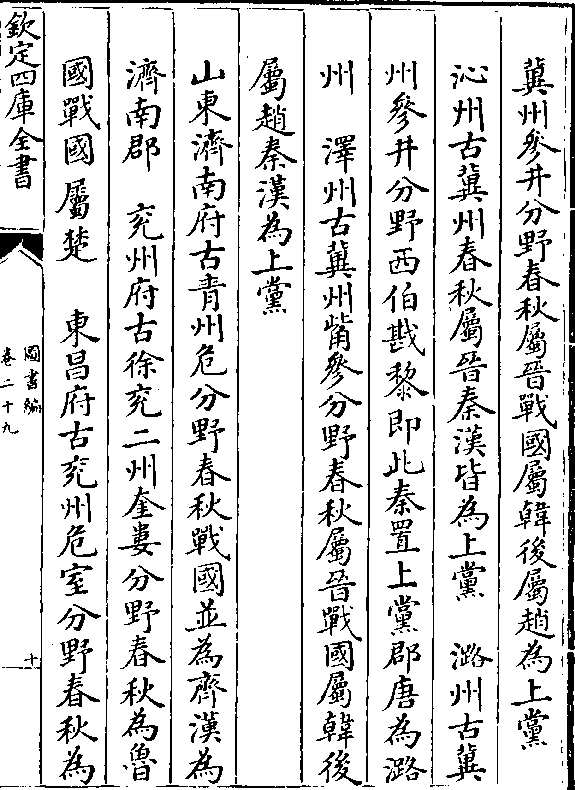 冀州參井分野春秋屬晉戰國屬韓後屬趙為上黨
沁州古冀州春秋屬晉秦漢皆為上黨　潞州古冀
州參井分野西伯戡黎即此秦置上黨郡唐為潞
州　澤州古冀州觜參分野春秋屬晉戰國屬韓後
屬趙秦漢為上黨
山東濟南府古青州危分野春秋戰國並為齊漢為
濟南郡　兖州府古徐兖二州奎婁分野春秋為魯
國戰國屬楚　東昌府古兖州危室分野春秋為
欽定四庫全書
圖書編
卷二十九
十